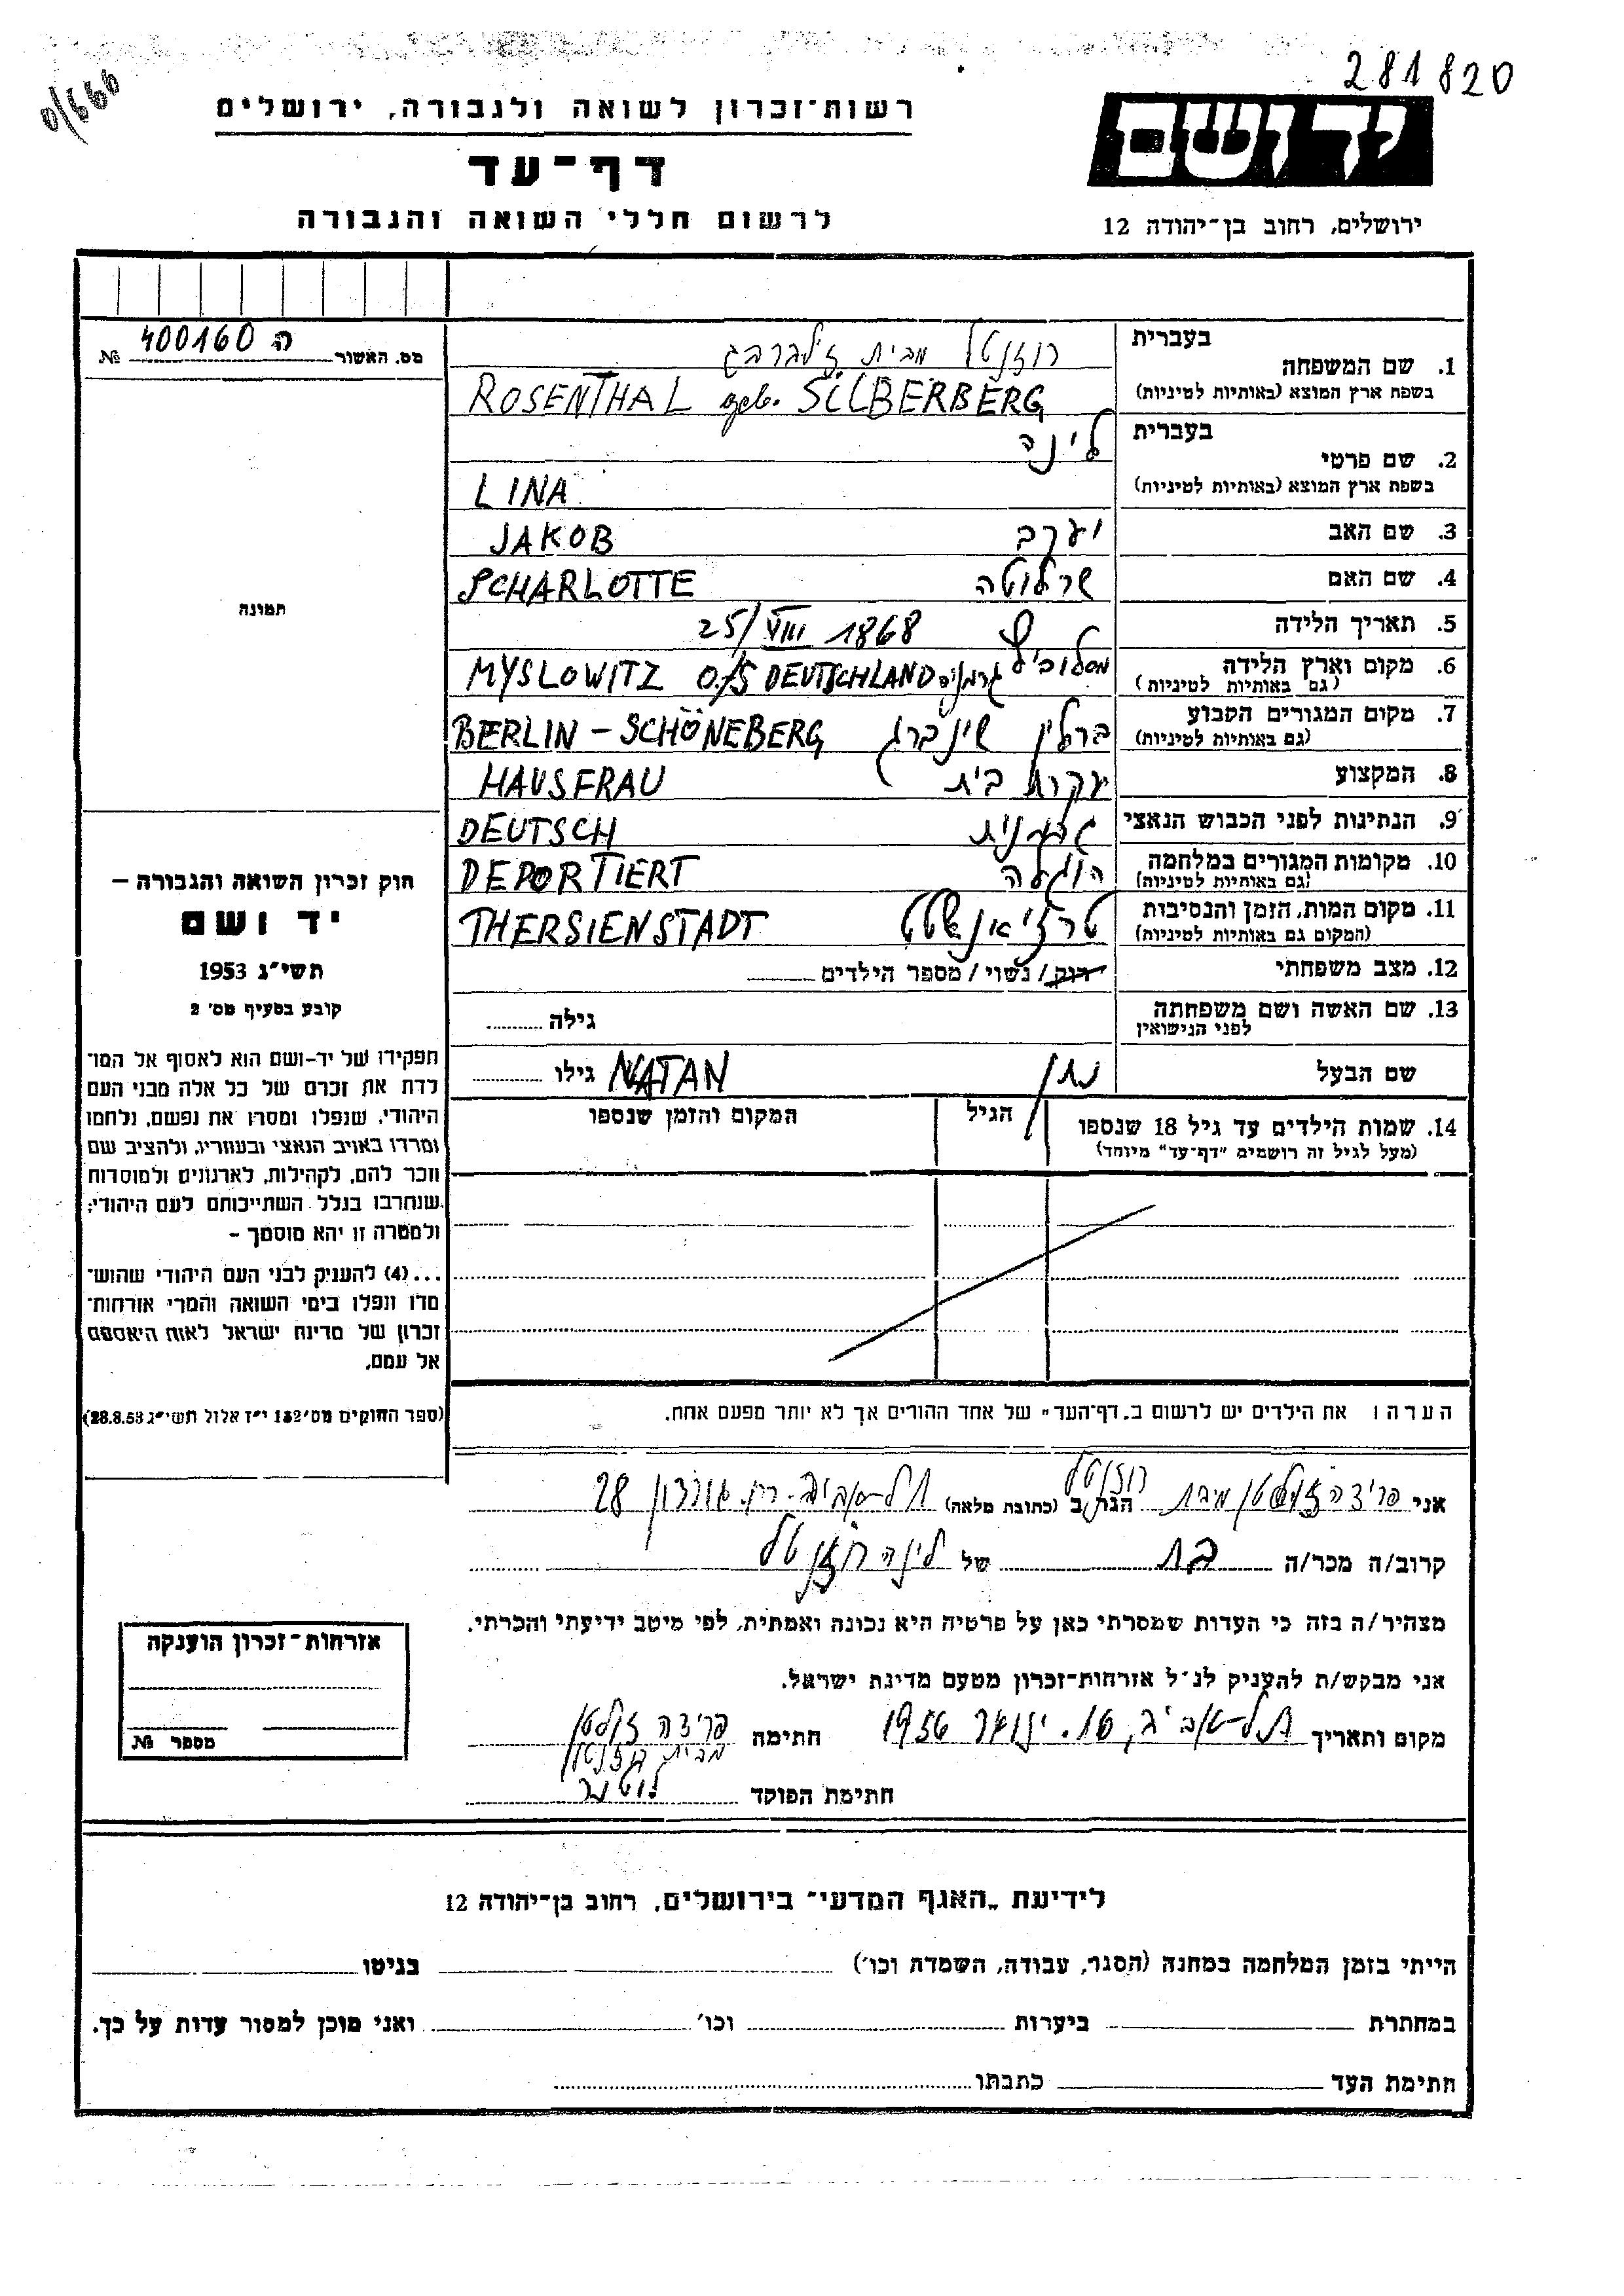 281820
0/666
יד ושם
רשות־זכרון לשואה ולגבורה, ירושלים
דף־עד
לרשום חללי השואה והגבורה
ירושלים, רחוב בן־יהודה 12
מס. האשור ה 400160 №
תמונה
חוק זכרון השואה והגבורה —
יד ושם
תשי״ג 1953
קובע בסעיף מס׳ 2
תפקידו של יד-ושם הוא לאסוף אל המו־
לדת את זכרם של כל אלה מבני העם
היהודי, שנפלו ומסרו את נפשם, נלחמו
ומרדו באויב הנאצי ובעוזריו, ולהציב שם
וזכר להם, לקהילות, לארגונים ולמוסדות
שנחרבו בגלל השתייכותם לעם היהודי;
ולמטרה זו יהא מוסמך –
...(4) להעניק לבני העם היהודי שהוש־
מדו ונפלו בימי השואה והמרי אזרחות־
זכרון של מדינת ישראל לאות היאספם
אל עמם.
(ספר החוקים מס׳ 132 י״ז אלול תשי״ג 28.8.53)
בעברית
1. שם המשפחה רוזנטל מבית זילברברג
בשפת ארץ המוצא (באותיות לטיניות) ROSENTHAL geb. SILBERBERG
בעברית
2. שם פרטי לינה
בשפת ארץ המוצא (באותיות לטיניות) LINA
3. שם האב יעקב JAKOB
4. שם האם שרלוטה SCHARLOTTE
5. תאריך הלידה 25/VIII 1868
6. מקום וארץ הלידה מסלוביץ גרמניה MYSLOWITZ O./S DEUTSCHLAND
(גם באותיות לטיניות)
7. מקום המגורים הקבוע ברלין שינברג BERLIN – SCHÖNEBERG
(גם באותיות לטיניות)
8. המקצוע עקרת בית HAUSFRAU
9. הנתינות לפני הכבוש הנאצי גרמנית DEUTSCH
10. מקומות המגורים במלחמה הוגלה DEPORTIERT
(גם באותיות לטיניות)
11. מקום המות, הזמן והנסיבות טרזיאנשטט THERSIENSTADT
(המקום גם באותיות לטיניות)
12. מצב משפחתי רוק / נשוי / מספר הילדים
13. שם האשה ושם משפחתה גילה
לפני הנישואין
שם הבעל נתן NATAN גילו
14. שמות הילדים עד גיל 18 שנספו הגיל המקום והזמן שנספו
(מעל לגיל זה רושמים "דף־עד" מיוחד)
הערה: את הילדים יש לרשום ב„דף־העד" של אחד ההורים אך לא יותר מפעם אחת.
רוזנטל
אני פריצה זולטן מבית הגר/ב (כתובת מלאה) תל-אביב. רח. גורדון 28
קרוב/ה מכר/ה בת של לינה רוזנטל
מצהיר/ה בזה כי העדות שמסרתי כאן על פרטיה היא נכונה ואמתית, לפי מיטב ידיעתי והכרתי.
אני מבקש/ת להעניק לנ״ל אזרחות־זכרון מטעם מדינת ישראל.
מקום ותאריך תל-אביב, 16. ינואר 1956 חתימה פריצה זולטן
מבית רוזנטל
חתימת הפוקד
אזרחות־זכרון הוענקה
מספר №
לידיעת „האגף המדעי" בירושלים, רחוב בן־יהודה 12
הייתי בזמן המלחמה במחנה (הסגר, עבודה, השמדה וכו׳) בגיטו
במחתרת ביערות וכו׳ ואני מוכן למסור עדות על כך.
חתימת העד כתבתו